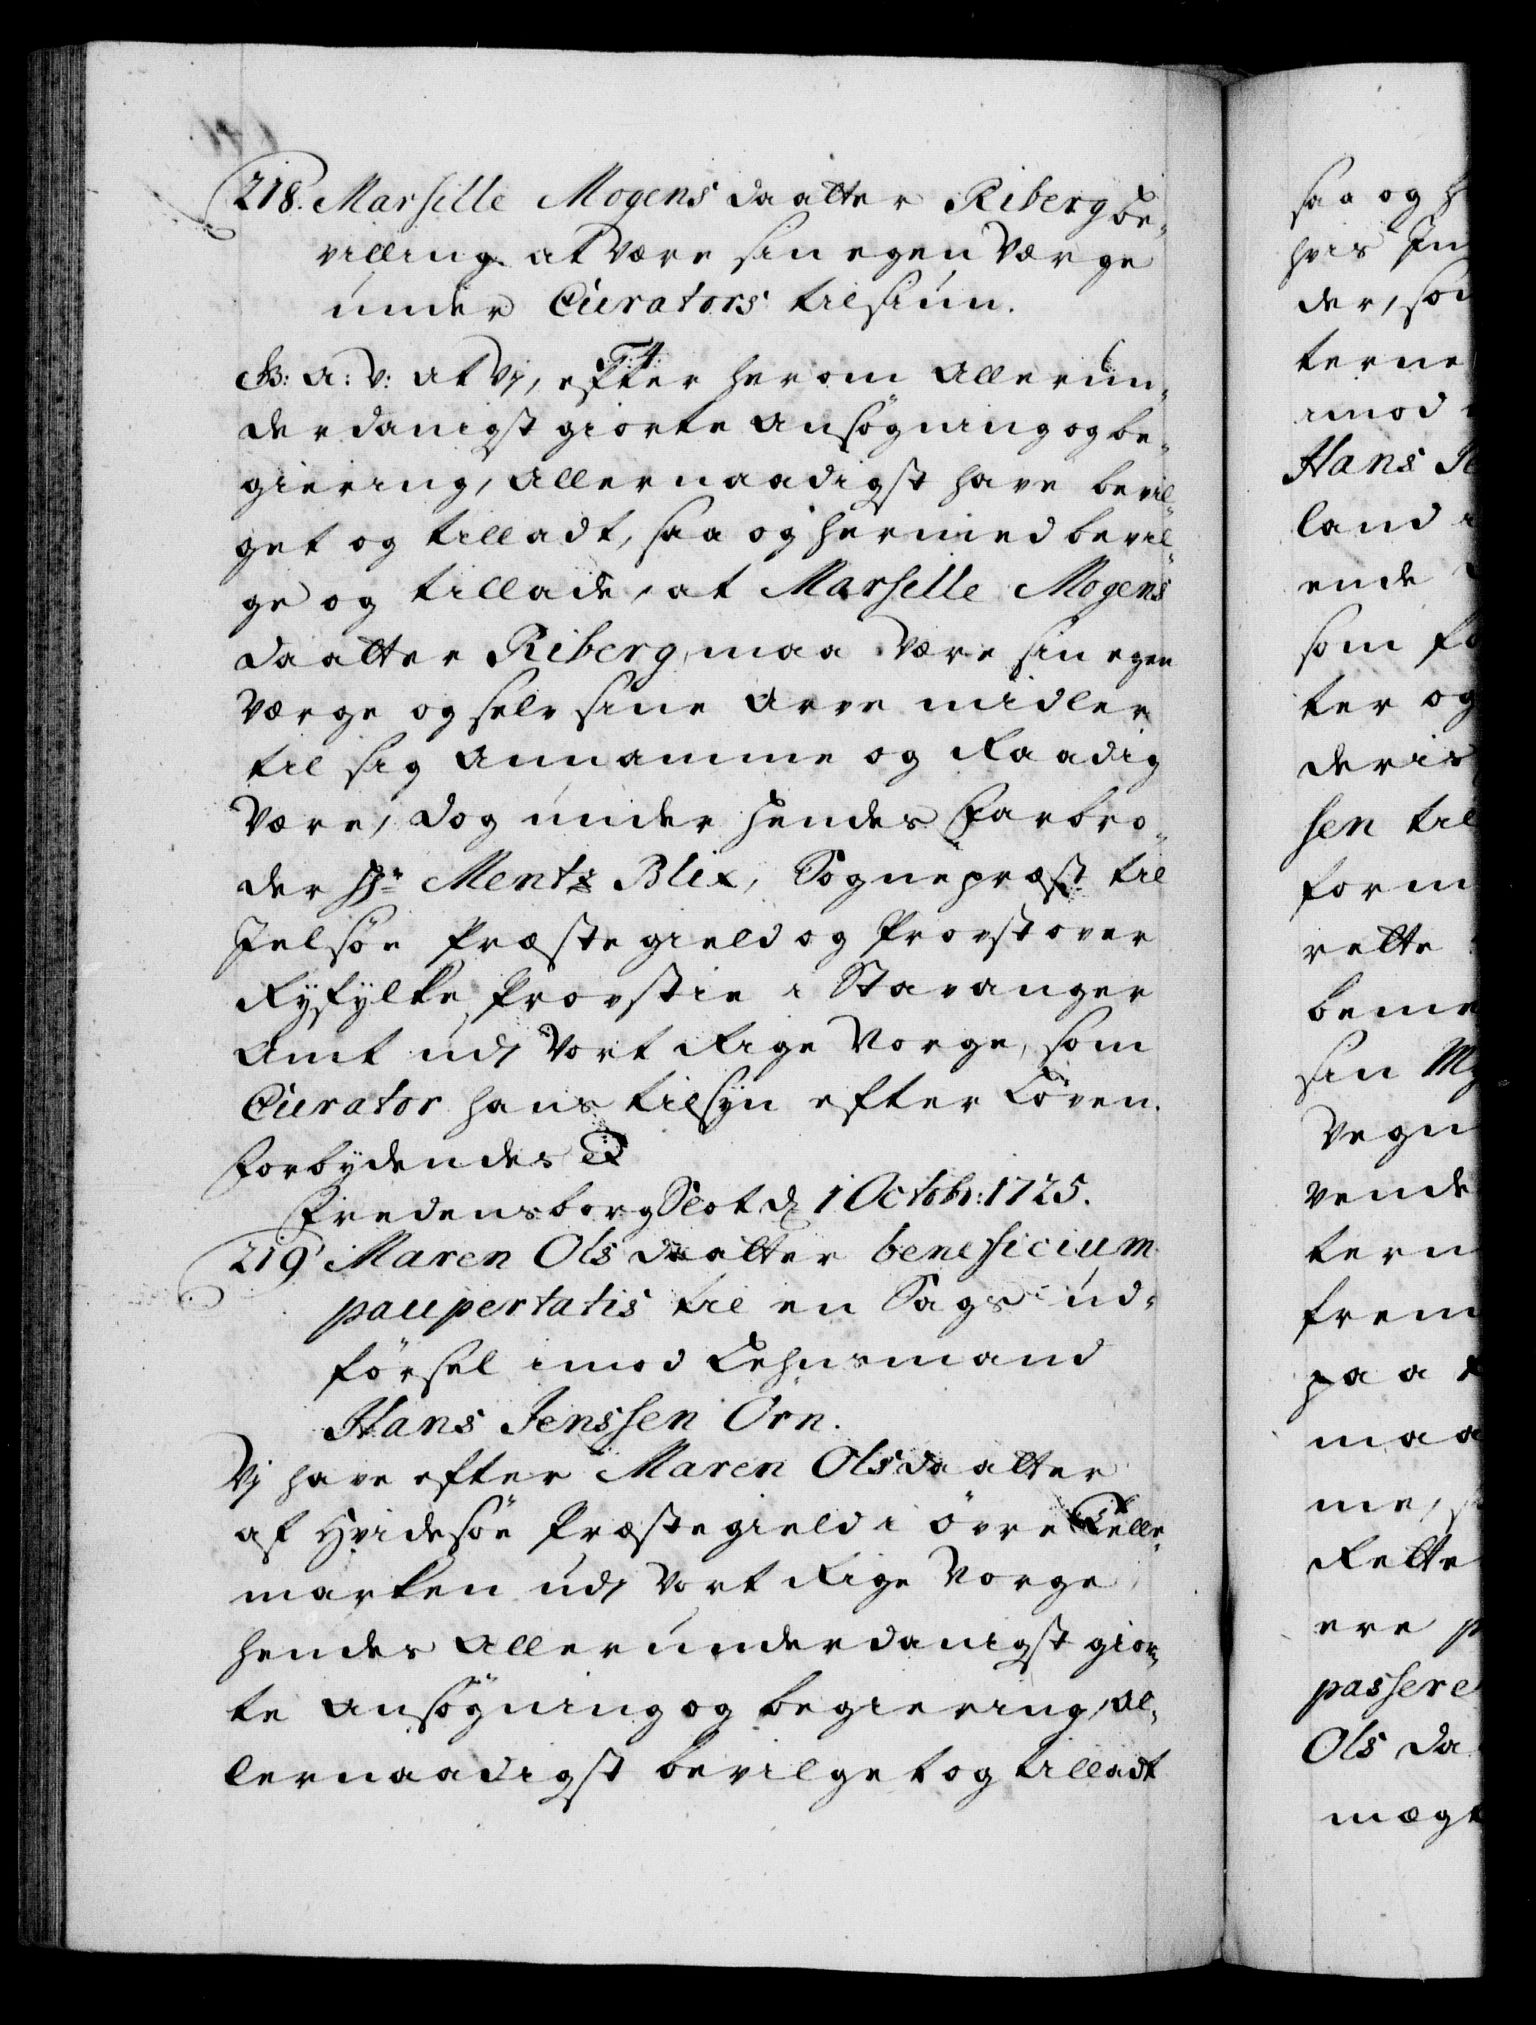 218. Marsille Mogens daatter Riberg be-
villing at være sin egen Værge
under Curators tilsiun.
G: A: V: at Vj, efter herom allerun-
derdanigst giorte ansögning og be-
giering, allernaadigst have bevil-
get og tilladt, saa og hermed bevil-
ge og tillade, at Marsille Mogens
daatter Riberg, maa være sin egen
Værge og selv sine arve midler
til sig annamme og Raadig
være, dog under hendes Farbro-
der Hr Mentz Blix, Sognepræst til
Jelsöe Præstegield og Provst over
Ryfylke Provstie i Stavanger
Amt udj Vort Rige Norge, som
Curator hans tilsyn efter Loven.
Forbydendes
Fredensborg Slot d 1 Octobr: 1725.
219 Maren Ols daatter beneficium
paupertatis til en Sags ud-
försel imod Lehnsmand
Hans Jenssen Örn.
Vj have efter Maren Olsdaatter
af Hvidesöe Præstegield i övre Telle-
marken udj Vort Rige Norge
hendes allerunderdanigst gior-
te ansögning og begiering, al-
lernaadigst bevilget og tilladt
saa og
hvis
der,
terne
imod
Hans
land
ende
som
ter og
deris
sen til
form
rette
beme
sin
Vegn
vende
tern
frem
paa
maa
me,
Rette
ere
passere
Ols da
mægt